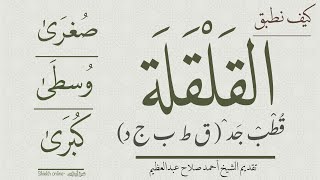 كيف نطبق
القَلْقَلَة
قُطْبُ جَدٍ (ق ط ب ج د)
تقديم الشيخ أحمد صلاح عبدالعظيم
صُغرَىٰ
وُسطَىٰ
كُبرَىٰ
Sheikh online